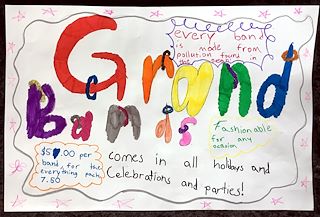 Grand
Bands
every band
is made from
pollution found in
the ocean
Fashionable
for any
occasion
$5.00 per
band for the
everything pack
7.50
comes in all holidays and
Celebrations and parties!